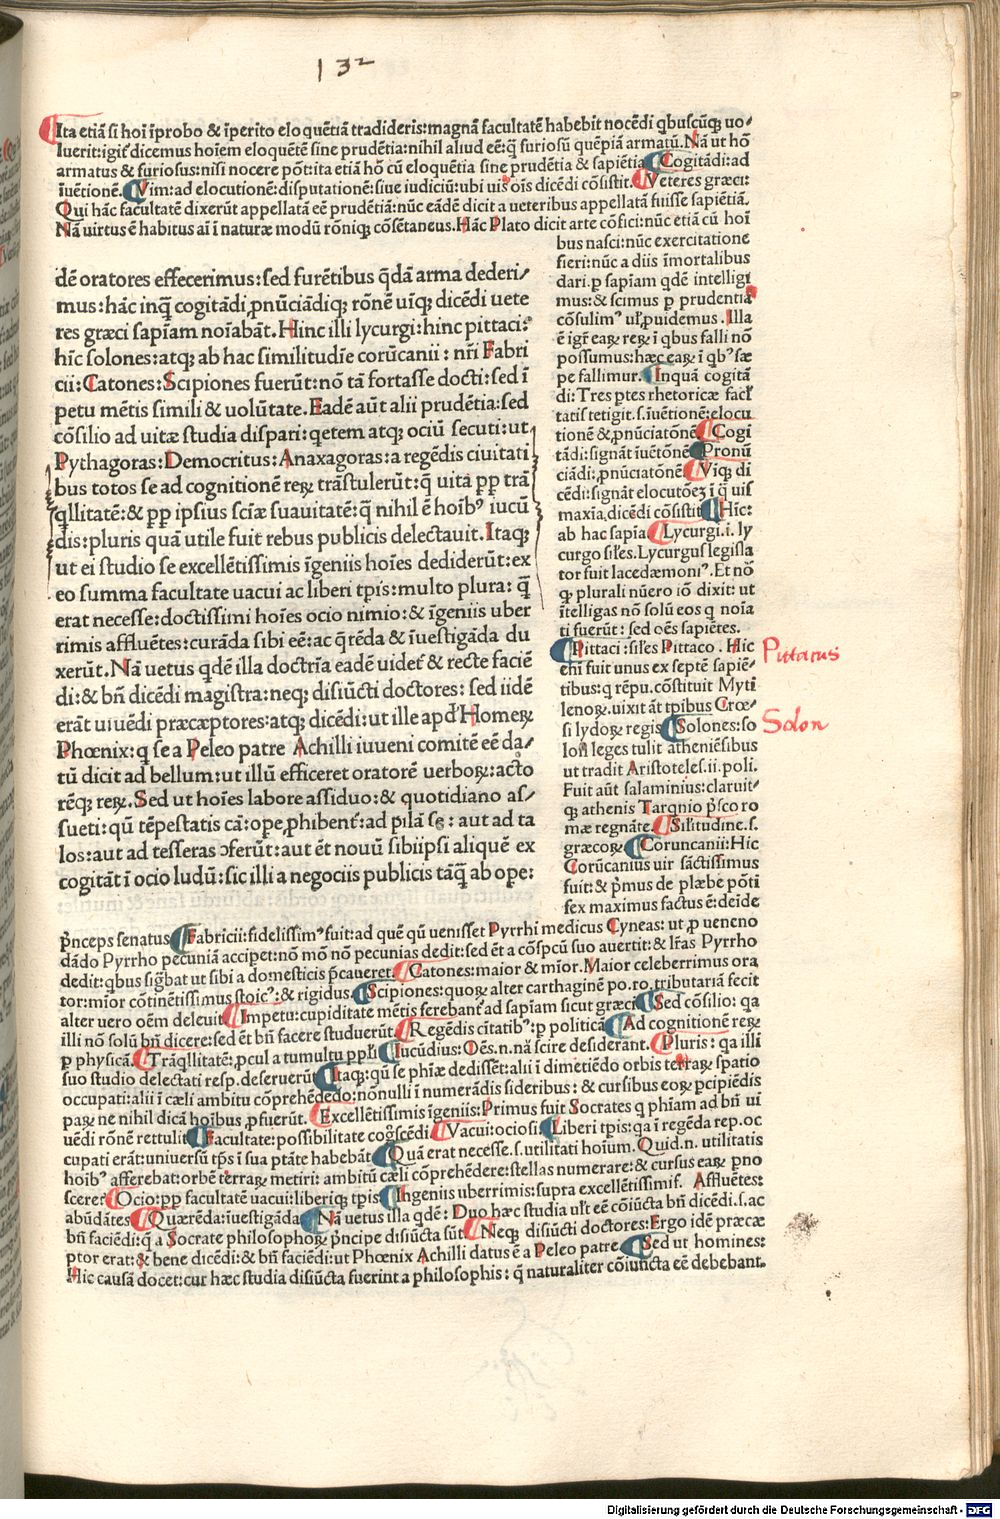 132
Ita etiā si hoī īprobo & īperito eloquētiā tradideris: magnā facultatē habebit nocēdi qbuscūqꝫ uo⸗
luerit: igit̄ dicemus hoīem eloquētē sine prudētia: nihil aliud eē: q̄ furiosū quēpiā armatū. Nā ut hō
armatus & furiosus: nisi nocere pōt: ita etiā hō cū eloquētia sine prudētia & sapiētia. Cogitādi: ad
īuētionē. Vim: ad elocutionē: disputationē: siue iudiciū: ubi uis oīs dicēdi cōsistit. Veteres græci:
Qui hāc facultatē dixerūt appellatā eē prudētiā: nūc eādē dicit a ueteribus appellatā fuisse sapiētiā.
Nā uirtus ē habitus aī ī naturæ modū rōniqꝫ cōsētaneus. Hāc Plato dicit arte cōfici: nūc etiā cū hoī
bus nasci: nūc exercitatione
fieri: nūc a diis īmortalibus
dari. p sapiam qdē intelligi
mus: & scimus p prudentiā
cōsulimꝰ ul̄ ꝓuidemus. Illa
ē igr̄ eaꝝ reꝝ ī qbus falli nō
possumus: hæc eaꝝ ī qbꝰ sæ
pe fallimur. Inquā cogitā
di: Tres ptes rhetoricæ facl̄
tatis tetigit. s. īuētionē: elocu
tionē & ꝓnūciatonē. Cogi
tādi: signāt īuētōnē. Pronū
ciādi, ꝓnūciatonē. Viqꝫ di
cēdi: signāt elocutōeꝫ ī q̄ uis
maxīa dicēdi cōsistit. Hīc:
ab hac sapīa. Lycurgi. i. ly
curgo sil̄es. Lycurgus legisla
tor fuit lacedæmoniꝰ. Et nō
qꝫ plurali nūero iō dixit: ut
ītelligas nō solū eos q noīa
ti fuerūt: sed oēs sapiētes.
Pittaci: sil̄es Pittaco. Hic
enī fuit unus ex septē sapiē⸗
tibus: q rēpu. cōstituit Myti
lenoꝝ. uixit āt tpibus Crœ⸗
si lydoꝝ regis. Solones: so
lon leges tulit atheniēsibus
ut tradit Aristoteles. ii. poli.
Fuit aūt salaminius: claruit⸗
qꝫ athenis Tarqnio p̄sco ro
mæ regnāte. Sil̄itudine. s.
græcoꝝ. Coruncanii: Hic
Corūcanius uir sāctissimus
fuit: & p̄mus de plæbe pōti
fex maximus factus ē: deīde
dē oratores effecerimus: sed furētibus q̄dā arma dederi⸗
mus: hāc inq̄ cogitādi ꝓnūciādiqꝫ rōnē uīqꝫ dicēdi uete
res græci sapīam noīabāt. Hinc illi lycurgi: hinc pittaci:
hīc solones: atqꝫ ab hac similitudīe corūcanii: nr̄i Fabri
cii: Catones: Scipiones fuerūt: nō tā fortasse docti: sed ī
petu mētis simili & uolūtate. Eadē aūt alii prudētia: sed
cōsilio ad uitæ studia dispari: qetem atqꝫ ociū secuti: ut
Pythagoras: Democritus: Anaxagoras: a regēdis ciuitati
bus totos se ad cognitionē reꝝ trāstulerūt: q̄ uita pp trā
qllitatē: & pp ipsius sciæ suauitatē: q̄ nihil ē hoībꝰ iucū
dis: pluris quā utile fuit rebus publicis delectauit. Itaqꝫ
ut ei studio se excellētissimis īgeniis hoīes dediderūt: ex
eo summa facultate uacui ac liberi tpis: multo plura: q̄
erat necesse: doctissimi hoīes ocio nimio: & īgeniis uber
rimis affluētes: curāda sibi eē: ac q̄rēda & īuestigāda du
xerūt. Nā uetus qdē illa doctrīa eadē uidet̄ & recte faciē
di: & bn̄ dicēdi magistra: neqꝫ disiūcti doctores: sed iidē
erāt uiuēdi præcæptores: atqꝫ dicēdi: ut ille apd̄ Homeꝝ
Phœnix: q se a Peleo patre Achilli iuueni comitē eē da⸗
tū dicit ad bellum: ut illū efficeret oratorē uerboꝝ: actō
rēqꝫ reꝝ. Sed ut hoīes labore assiduo: & quotidiano as⸗
sueti: qū tēpestatis cā: ope, phibent̄: ad pilā se: aut ad ta
los: aut ad tesseras ɔferūt: aut ēt nouū sibiipsi aliquē ex
cogitāt ī ocio ludū: sic illi a negociis publicis tāq̄ ab ope:
p̄nceps senatus. Fabricii: fidelissimꝰ fuit: ad quē qū uenisset Pyrrhi medicus Cyneas: ut ꝓ ueneno
dādo Pyrrho pecuniā acciperet: nō mō nō pecunias dedit: sed ēt a cōspcū suo auertit: & lr̄as Pyrrho
dedit: qbus sig̅bat ut sibi a domesticis p̄caueret. Catones: maior & mīor. Maior celeberrimus ora
tor: mīor cōtinētissimus stoicꝰ: & rigidus. Scipiones: quoꝝ alter carthaginē po. ro. tributariā fecit
alter uero oēm deleuit. Impetu: cupiditate mētis ferebant̄ ad sapiam sicut græci. Sed cōsilio: qa
illi nō solū bn̄ dicere: sed ēt bn̄ facere studuerūt. Regēdis cītatibꝰ: p politicā. Ad cognitionē reꝝ
p physicā. Trāqllitatē: ꝓcul a tumultu ppl̄i. Iucūdius: Oēs. n. nā scire desiderant. Pluris: qa illi
suo studio delectati resp. deseruerūt. Itaqꝫ: qū se phīæ dedissēt: alii ī dimetiēdo orbis terraꝝ spatio
occupati: alii ī cæli ambitu cōprehēdedo: nōnulli ī numerādis sideribus: & cursibus eoꝝ pcipiēdis
paꝝ ne nihil dicā hoībus ꝓfuerūt. Excellētissimis īgeniis: Primus fuit Socrates q phīam ad bn̄ ui
uēdi rōnē rettulit. Facultate: possibilitate cog̅scēdi. Vacui: ociosi. Liberi tpis: qa ī regēda rep. oc
cupati erāt: uniuersū tp̄s ī sua ptāte habebāt. Quā erat necesse. s. utilitati hoīum. Quid. n. utilitatis
hoībꝰ afferebat: orbē terraꝝ metiri: ambitū cæli cōprehēdere: stellas numerare: & cursus eaꝝ pno
scere? Ocio: pp facultatē uacui: liberiqꝫ tpis. Ingeniis uberrimis: supra excellētissimis. Affluētes:
abūdātes. Quærēda: īuestigāda. Nā uetus illa qdē: Duo hæc studia ul̄t eē cōiūcta bn̄ dicēdi. s. ac
bn̄ faciēdi: q̄ a Socrate philosophoꝝ p̄ncipe disiūcta sūt. Neqꝫ disiūcti doctores: Ergo idē præcæ
ptor erat: & bene dicēdi: & bn̄ faciēdi: ut Phœnix Achilli datus ē a Peleo patre. Sed ut homines:
Hic causā docet: cur hæc studia disiūcta fuerint a philosophis: q̄ naturaliter cōiuncta eē debebant.
Pittacus
Solon
Digitalisierung gefördert durch die Deutsche Forschungsgemeinschaft - DFG